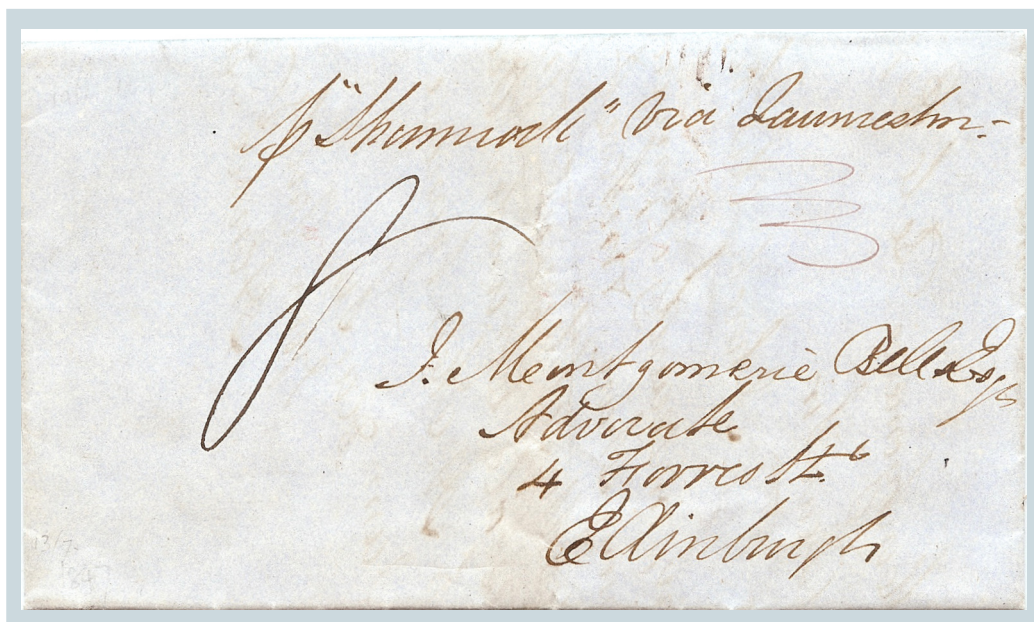 p "Shamrock" via Launceston -
3
8
J. Montgomerie Bell Esqr
Advocate
4 Forres St.
Edinburgh